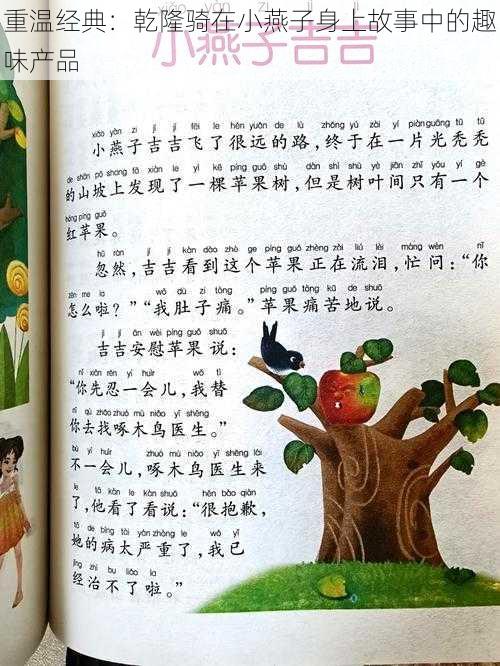 重温经典：乾隆骑在小燕子身上故事中的趣
味产品
小燕子吉吉
xiǎo yàn zi jí jí fēi le hěn yuǎn de lù zhōng yú zài yí piàn guāng tū tū
小燕子吉吉飞了很远的路，终于在一片光秃秃
de shān pō shang fā xiàn le yì kē píng guǒ shù dàn shì shù yè jiān zhǐ yǒu yí gè
的山坡上发现了一棵苹果树，但是树叶间只有一个
hóng píng guǒ
红苹果。
hū rán jí jí kàn dào zhè ge píng guǒ zhèng zài liú lèi máng wèn nǐ
忽然，吉吉看到这个苹果正在流泪，忙问：“你
zěn me la wǒ dù zi tòng píng guǒ tòng kǔ de shuō
怎么啦？”“我肚子痛。”苹果痛苦地说。
jí jí ān wèi píng guǒ shuō
吉吉安慰苹果说：
nǐ xiān rěn yí huìr wǒ tì
“你先忍一会儿，我替
nǐ qù zhǎo zhuó mù niǎo yī shēng
你去找啄木鸟医生。”
bù yí huìr zhuó mù niǎo yī shēng lái
不一会儿，啄木鸟医生来
le tā kàn le kàn shuō hěn bào qiàn
了，他看了看说：“很抱歉，
tā de bìng tài yán zhòng le wǒ yǐ
她的病太严重了，我已
jīng zhì bu liǎo la
经治不了啦。”